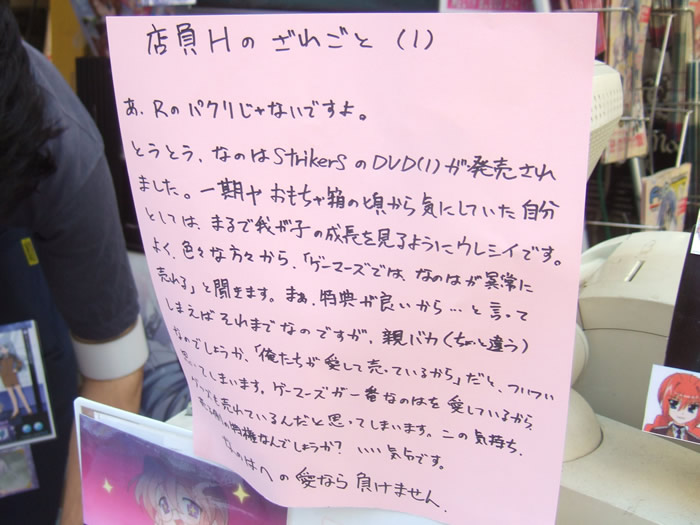 店員Hの ざれごと (1)
あ、Rのパクリじゃないですよ。
とうとう、なのはStrikerSのDVD(1)が発売され
ました。一期やおもちゃ箱の頃から気にしていた自分
としては、まるで我が子の成長を見るようにウレシイです。
よく、色々な方々から、「ゲーマーズでは、なのはが異常に
売れる」と聞きます。まぁ、特典が良いから…と言って
しまえばそれまでなのですが、親バカ(ちょっと違う)
なのでしょうか、「俺たちが愛して売っているから」だと、ついつい
思ってしまいます。ゲーマーズが一番なのはを愛しているから、
グッズも売れているんだと思ってしまいます。この気持ち、
なんでしょうか? いい気分です。
なのはへの愛なら負けません.